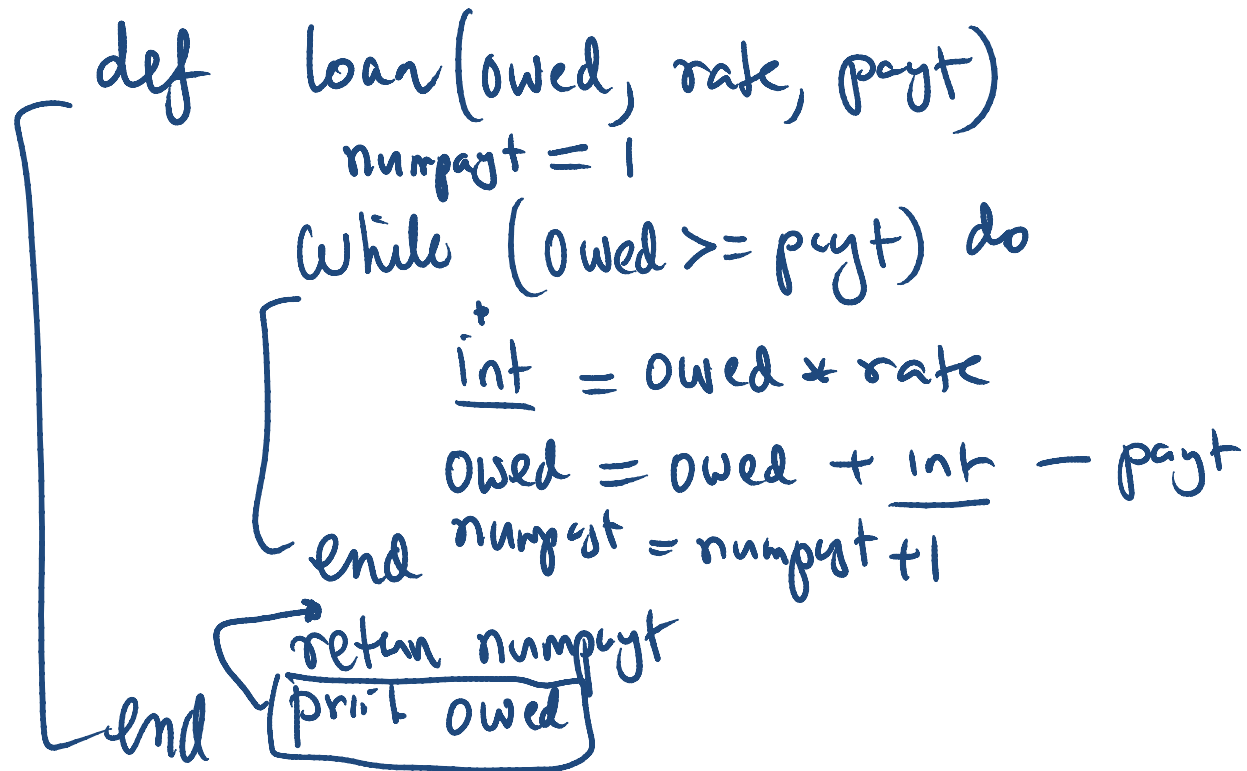 def loan(owed, rate, payt)
numpayt = 1
while (owed >= payt) do
int = owed * rate
owed = owed + int - payt
numpayt = numpyt + 1
end
return numpayt
print owed
end